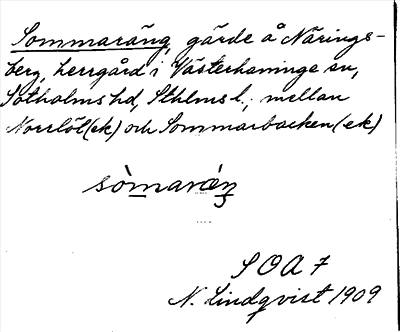 Sommaräng, gärde å Närings-
berg, herrgård i Västerhaninge sn,
Sotholms hd, Sthlms l., mellan
Norrlöt (ek) och Sommarbacken (ek)
sòmaræ̀ŋ
S O A 7
N. Lindqvist 1909